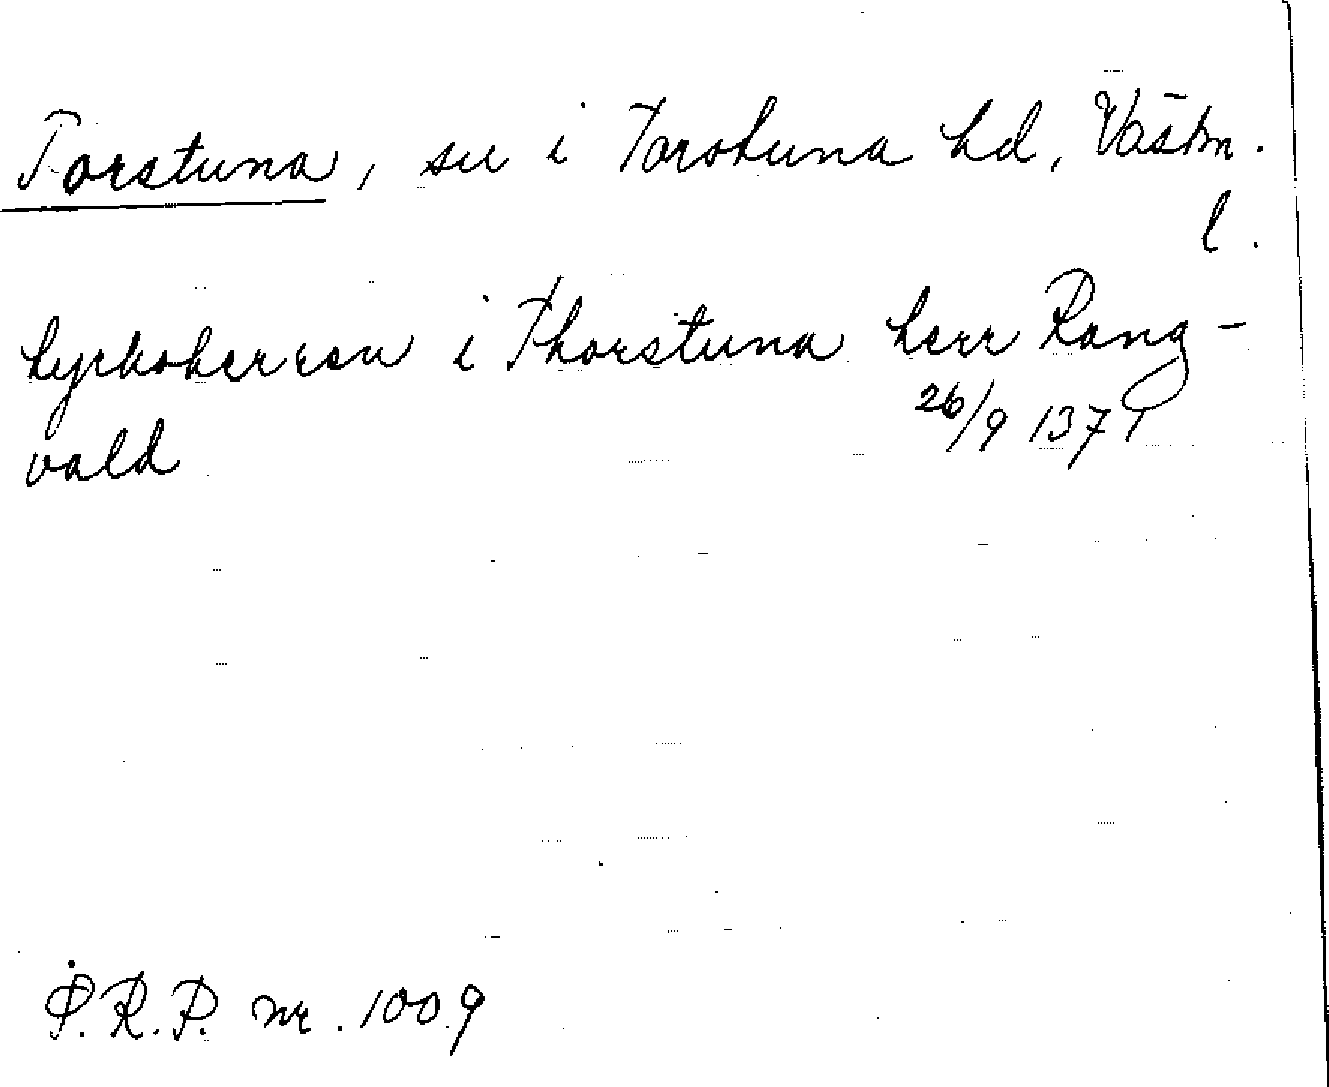 Torstuna, sn i Torstuna hd, Västm.
l.
kyrkoherren i Thorstuna herr Rang-
vald 26/9 1371
P.R.P. nr. 1009